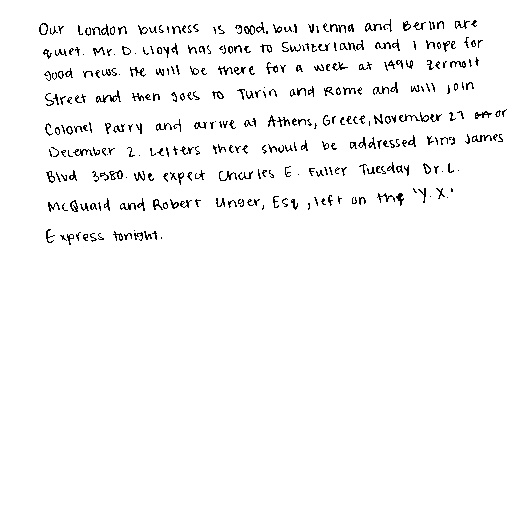 Our London business is good, but Vienna and Berlin are
quiet. Mr. D. Lloyd has gone to Switzerland and I hope for
good news. He will be there for a week at 1496 Zermott
Street and then goes to Turin and Rome and will join
Colonel Parry and arrive at Athens, Greece, November 27 or
December 2. Letters there should be addressed King James
Blvd 3580. We expect Charles E. Fuller Tuesday Dr. L.
McQuaid and Robert Unger, Esq, left on the 'Y.X.'
Express tonight.